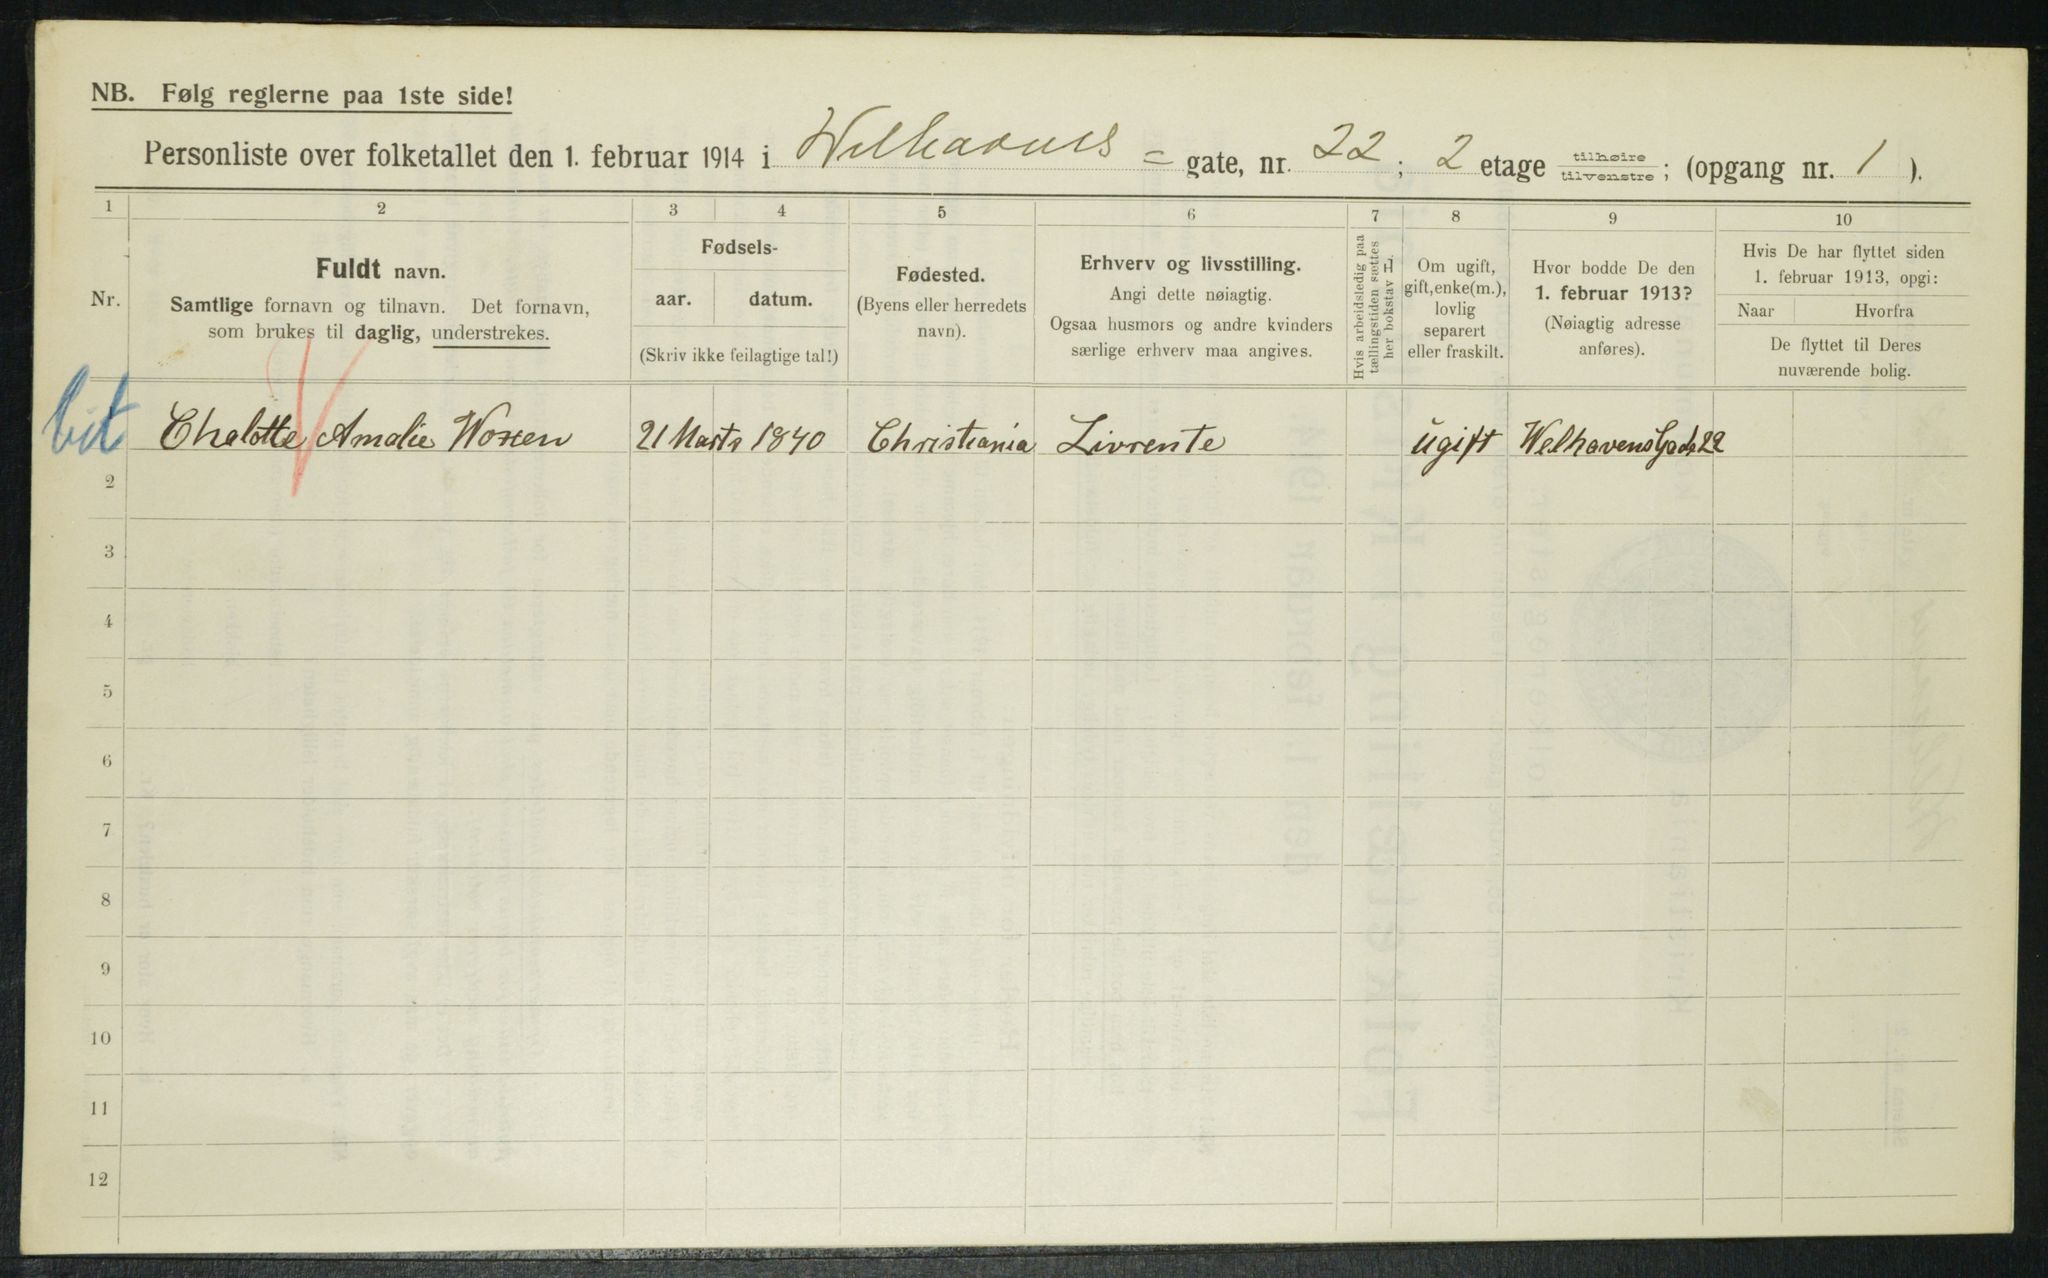 NB. Følg reglerne paa 1ste side!
Personliste over folketallet den 1. februar 1914 i Welhavens = gate, nr. 22 ; 2 etage tilhøire tilvenstre ; (opgang nr. 1 ).
1 2 3 4 5 6 7 8 9 10
Nr.
Fuldt navn.
Samtlige fornavn og tilnavn. Det fornavn,
som brukes til daglig, understrekes.
Fødsels-
aar. datum.
(Skriv ikke feilagtige tal!)
Fødested.
(Byens eller herredets
navn).
Erhverv og livsstilling.
Angi dette nøiagtig.
Ogsaa husmors og andre kvinders
særlige erhverv maa angives.
Hvis arbeidsledig paa
tællingstiden sættes
her bokstav L.
Om ugift,
gift, enke(m.),
lovlig
separert
eller fraskilt.
Hvor bodde De den
1. februar 1913?
(Nøiagtig adresse
anføres).
Hvis De har flyttet siden
1. februar 1913, opgi:
Naar Hvorfra
De flyttet til Deres
nuværende bolig.
Chalotte Amalie Woxen 21 Marts 1840 Christiania Livrente ugift Welhavens Gade 22
2
3
4
5
6
7
8
9
10
11
12